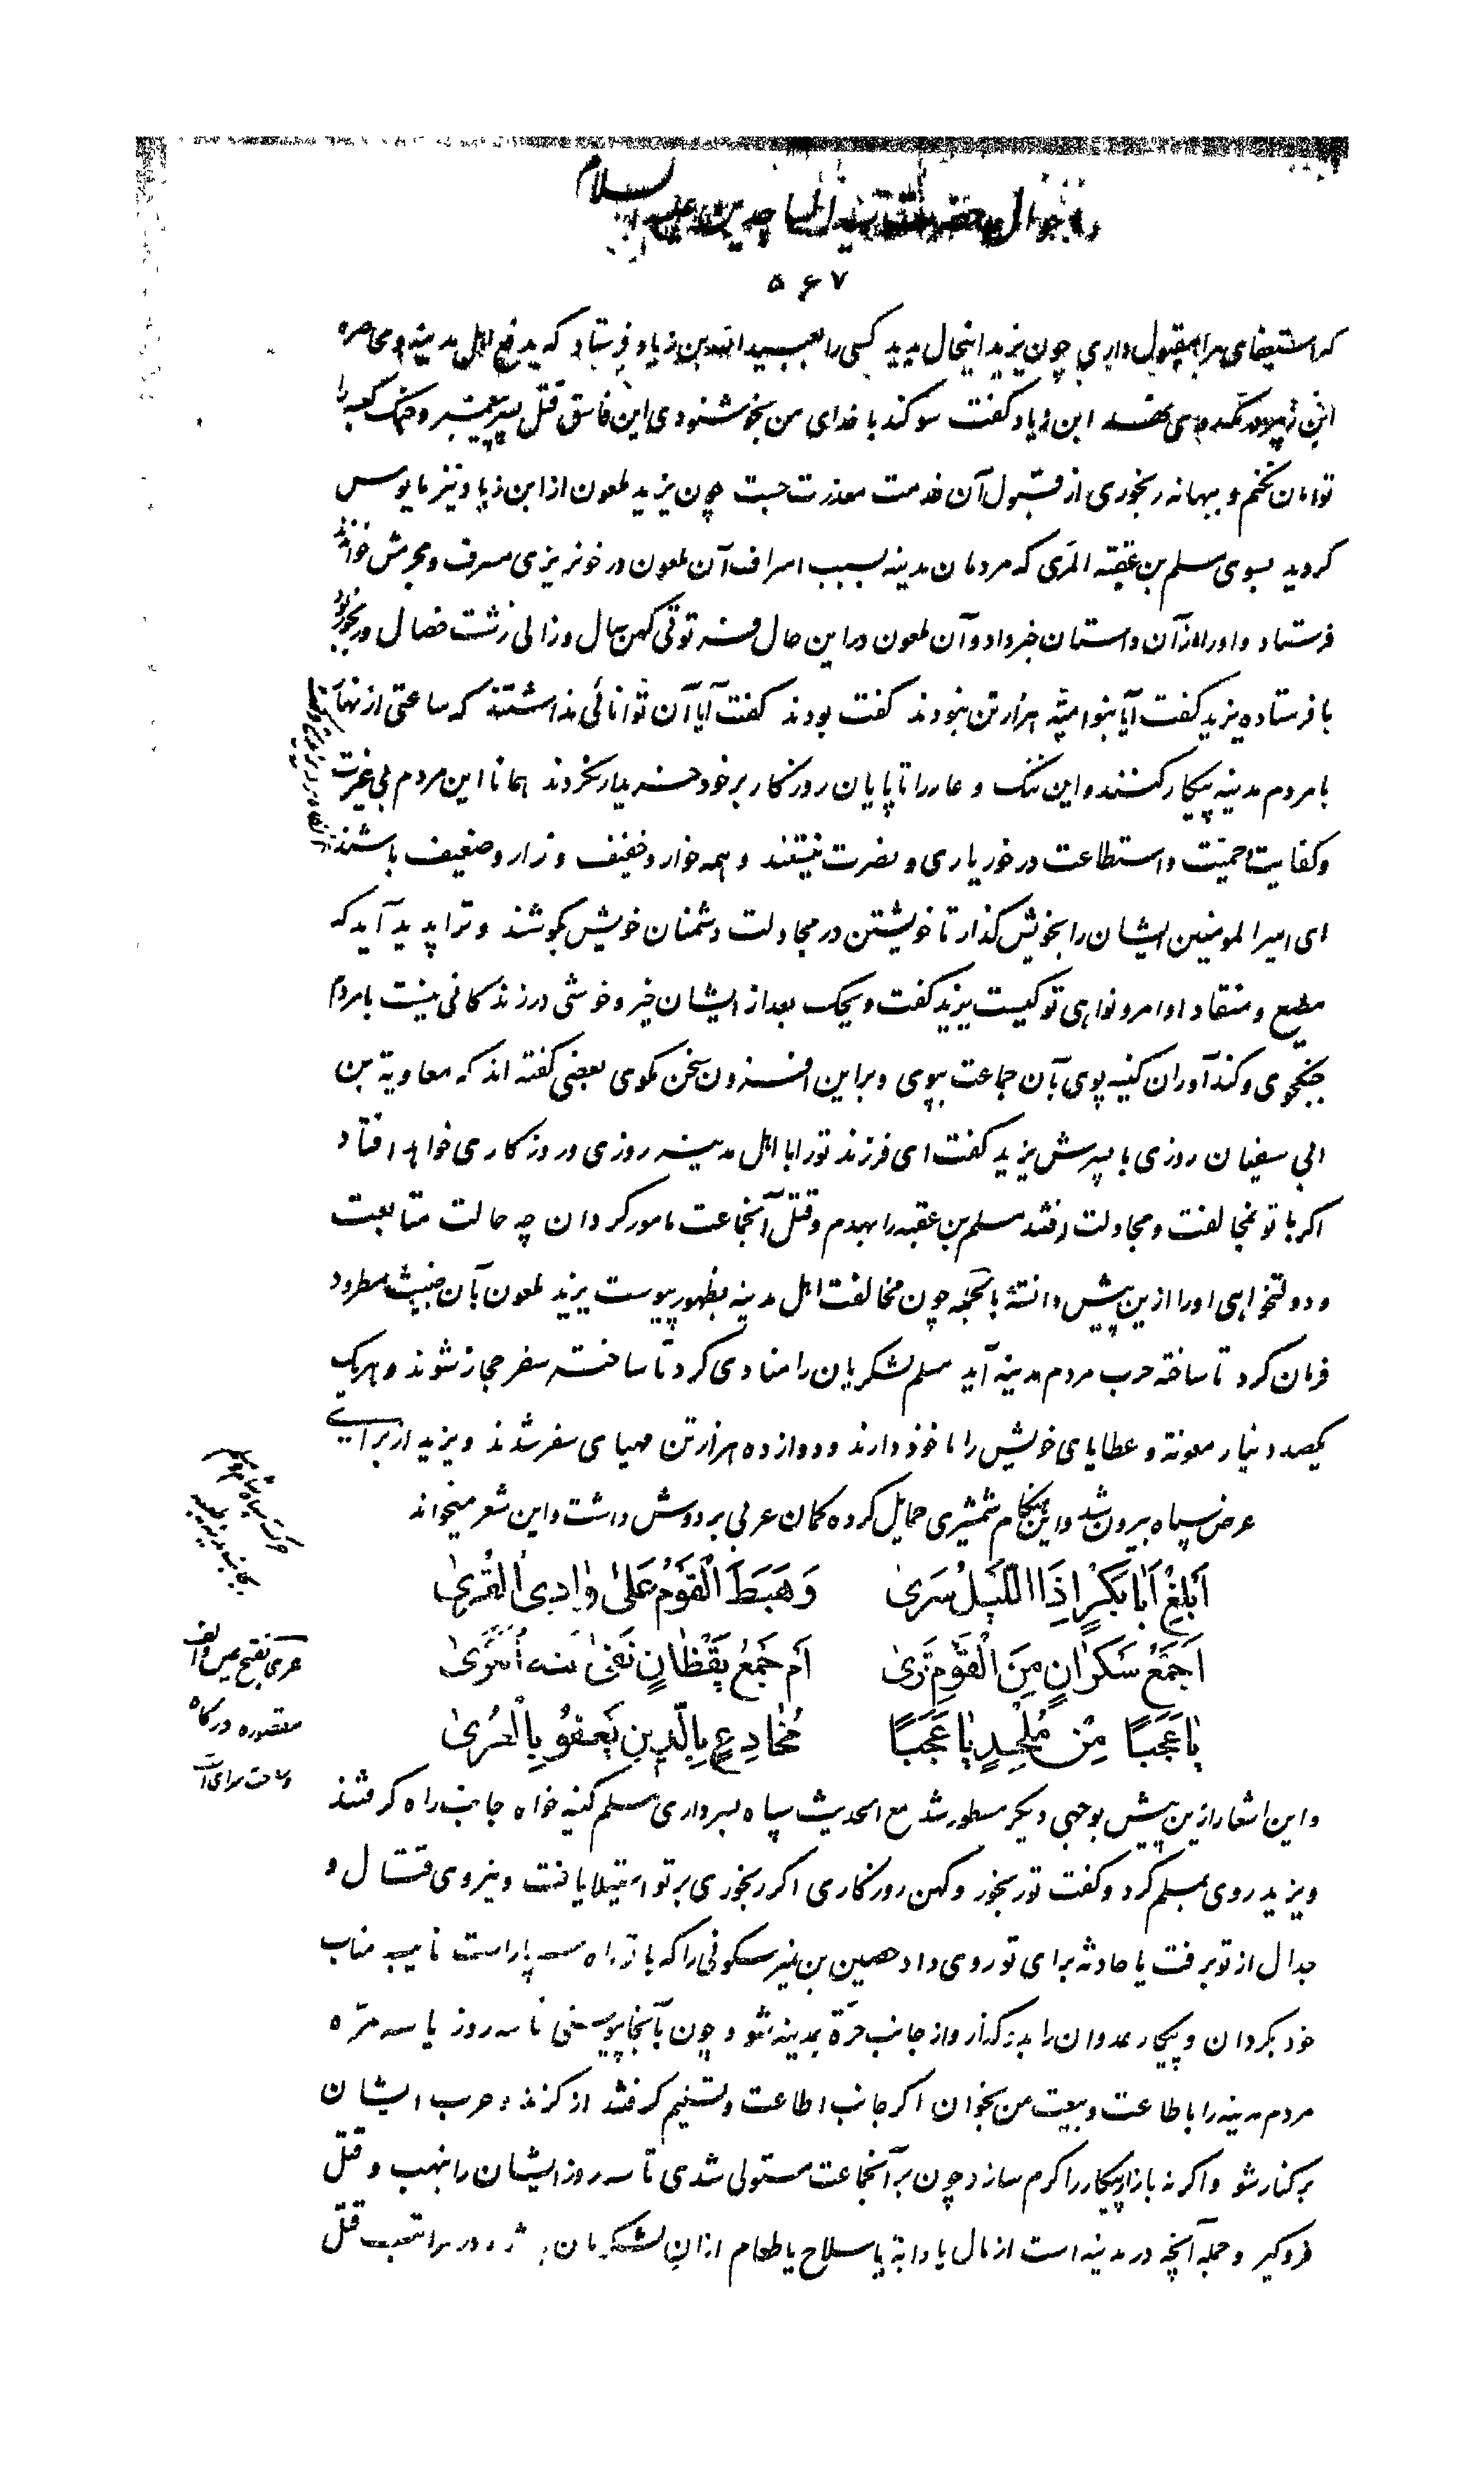 در احوال حضرت سید الساجدین علیه السلام
۵۶۷
که استعفای مرا مقبول داری چون یزید اینحال بدید کسی را بعبیدالله بن زیاد فرستاد که بدفع اهل مدینه و محاصره
ابن زبیر در مکه روی نهد ابن زیاد گفت سوگند با خدای من بخوشنودی این فاسق قتل پسر پیغمبر و جنگ کعبه را
توامان نکنم و ببهانه رنجوری از قبول آن خدمت معذرت جست چون یزید ملعون از ابن زیاد نیز مایوس
گردید بسوی مسلم بن عقبة المری که مردمان مدینه بسبب اسراف آن ملعون در خونریزی مسرف و مجرمش خواندند
فرستاد و او را از آن داستان خبر داد و آن ملعون در این حال فرتوتی کهن سال و زالی زشت خصال و رنجور بود
با فرستاده یزید گفت آیا بنوامیه هزار تن نبودند گفت بودند گفت آیا آن توانائی نداشتند که ساعتی از نهار
با مردم مدینه پیکار کنند و این ننگ و عار را تا پایان روزگار بر خود خریدار نگردند همانا این مردم بی غیرت
و کفایت و حمیت و استطاعت در خور یاری و نصرت نیستند و همه خوار و خفیف و زار و ضعیف باشند
ای امیرالمومنین ایشان را بخویش گذار تا خویشتن در مجادلت دشمنان خویش بکوشند و ترا پدید آید که
مطیع و منقاد اوامر و نواهی تو کیست یزید گفت ویحک بعد از ایشان خیر و خوشی در زندگانی نیست با مردم
جنگجوی و کندآوران کینه پوی بآن جماعت بپوی و براین افزون سخن مگوی بعضی گفته اند که معاویة بن
ابی سفیان روزی با پسرش یزید گفت ای فرزند تو را با اهل مدینه روزی و روزگاری خواهد افتاد
اگر با تو بمخالفت و مجادلت رفتند مسلم بن عقبه را بهدم و قتل آنجماعت مامور گردان چه حالت متابعت
و دولتخواهی او را از این پیش دانسته بالجمله چون مخالفت اهل مدینه بظهور پیوست یزید ملعون بآن خبیث مطرود
فرمان کرد تا ساخته حرب مردم مدینه آید مسلم لشکریان را منادی کرد تا ساخته سفر حجاز شوند و هریک
یکصد دینار معونة و عطایای خویش را ماخوذ دارند و دوازده هزار تن مهیای سفر شدند و یزید از برای
عرض سپاه بیرون شد و این هنگام شمشیری حمایل کرده کمان عربی بر دوش داشت و این شعر میخواند
اَبلِغْ اَبابَکْرٍ اِذَا اللَّیْلُ سَریٰ وَهَبَطَ الْقَوْمُ عَلیٰ وٰادِی الْقُریٰ
اَجَمْعُ سَکْرٰانٍ مِنَ الْقَوْمِ تَریٰ اَم جَمْعُ یَقْظٰانٍ نَفیٰ عَنْه الْکَریٰ
یٰا عَجَبًا مِنْ مُلْحِدٍ یٰا عَجَبًا مُخٰادِعٍ بِالدّینِ یَعْفُو بِالْعُریٰ
و این اشعار از این پیش بوجهی دیگر مسطور شد مع الحدیث سپاه بسرداری مسلم کینه خواه جانب راه گرفتند
و یزید روی بمسلم کرد و گفت تو رنجور و کهن روزگاری اگر رنجوری بر تو استیلا یافت و نیروی قتال و
جدال از تو برفت یا حادثه برای تو روی داد حصین بن نمیر سکونی را که با تو راه سپار است نایب مناب
خود بگردان و پیکار عدوان را بدو گذار و از جانب حرّة بمدینه شو و چون بآنجا پیوستی تا سه روز یا سه مرّه
مردم مدینه را باطاعت و بیعت من بخوان اگر جانب اطاعت و تسلیم گرفتند از گزند و حرب ایشان
برکنار شو و اگر نه بازار پیکار را گرم ساز و چون بر آنجماعت مستولی شدی تا سه روز ایشان را نهب و قتل
فروگیر و جمله آنچه در مدینه است از مال یا دابة یا سلاح یا طعام از آن لشکریان در مراتب قتل
حرکت سپاه شام
بجانب مدینه طیبه
عری بفتح عین و الف
مقصوره درگاه
و ساحت سرای است